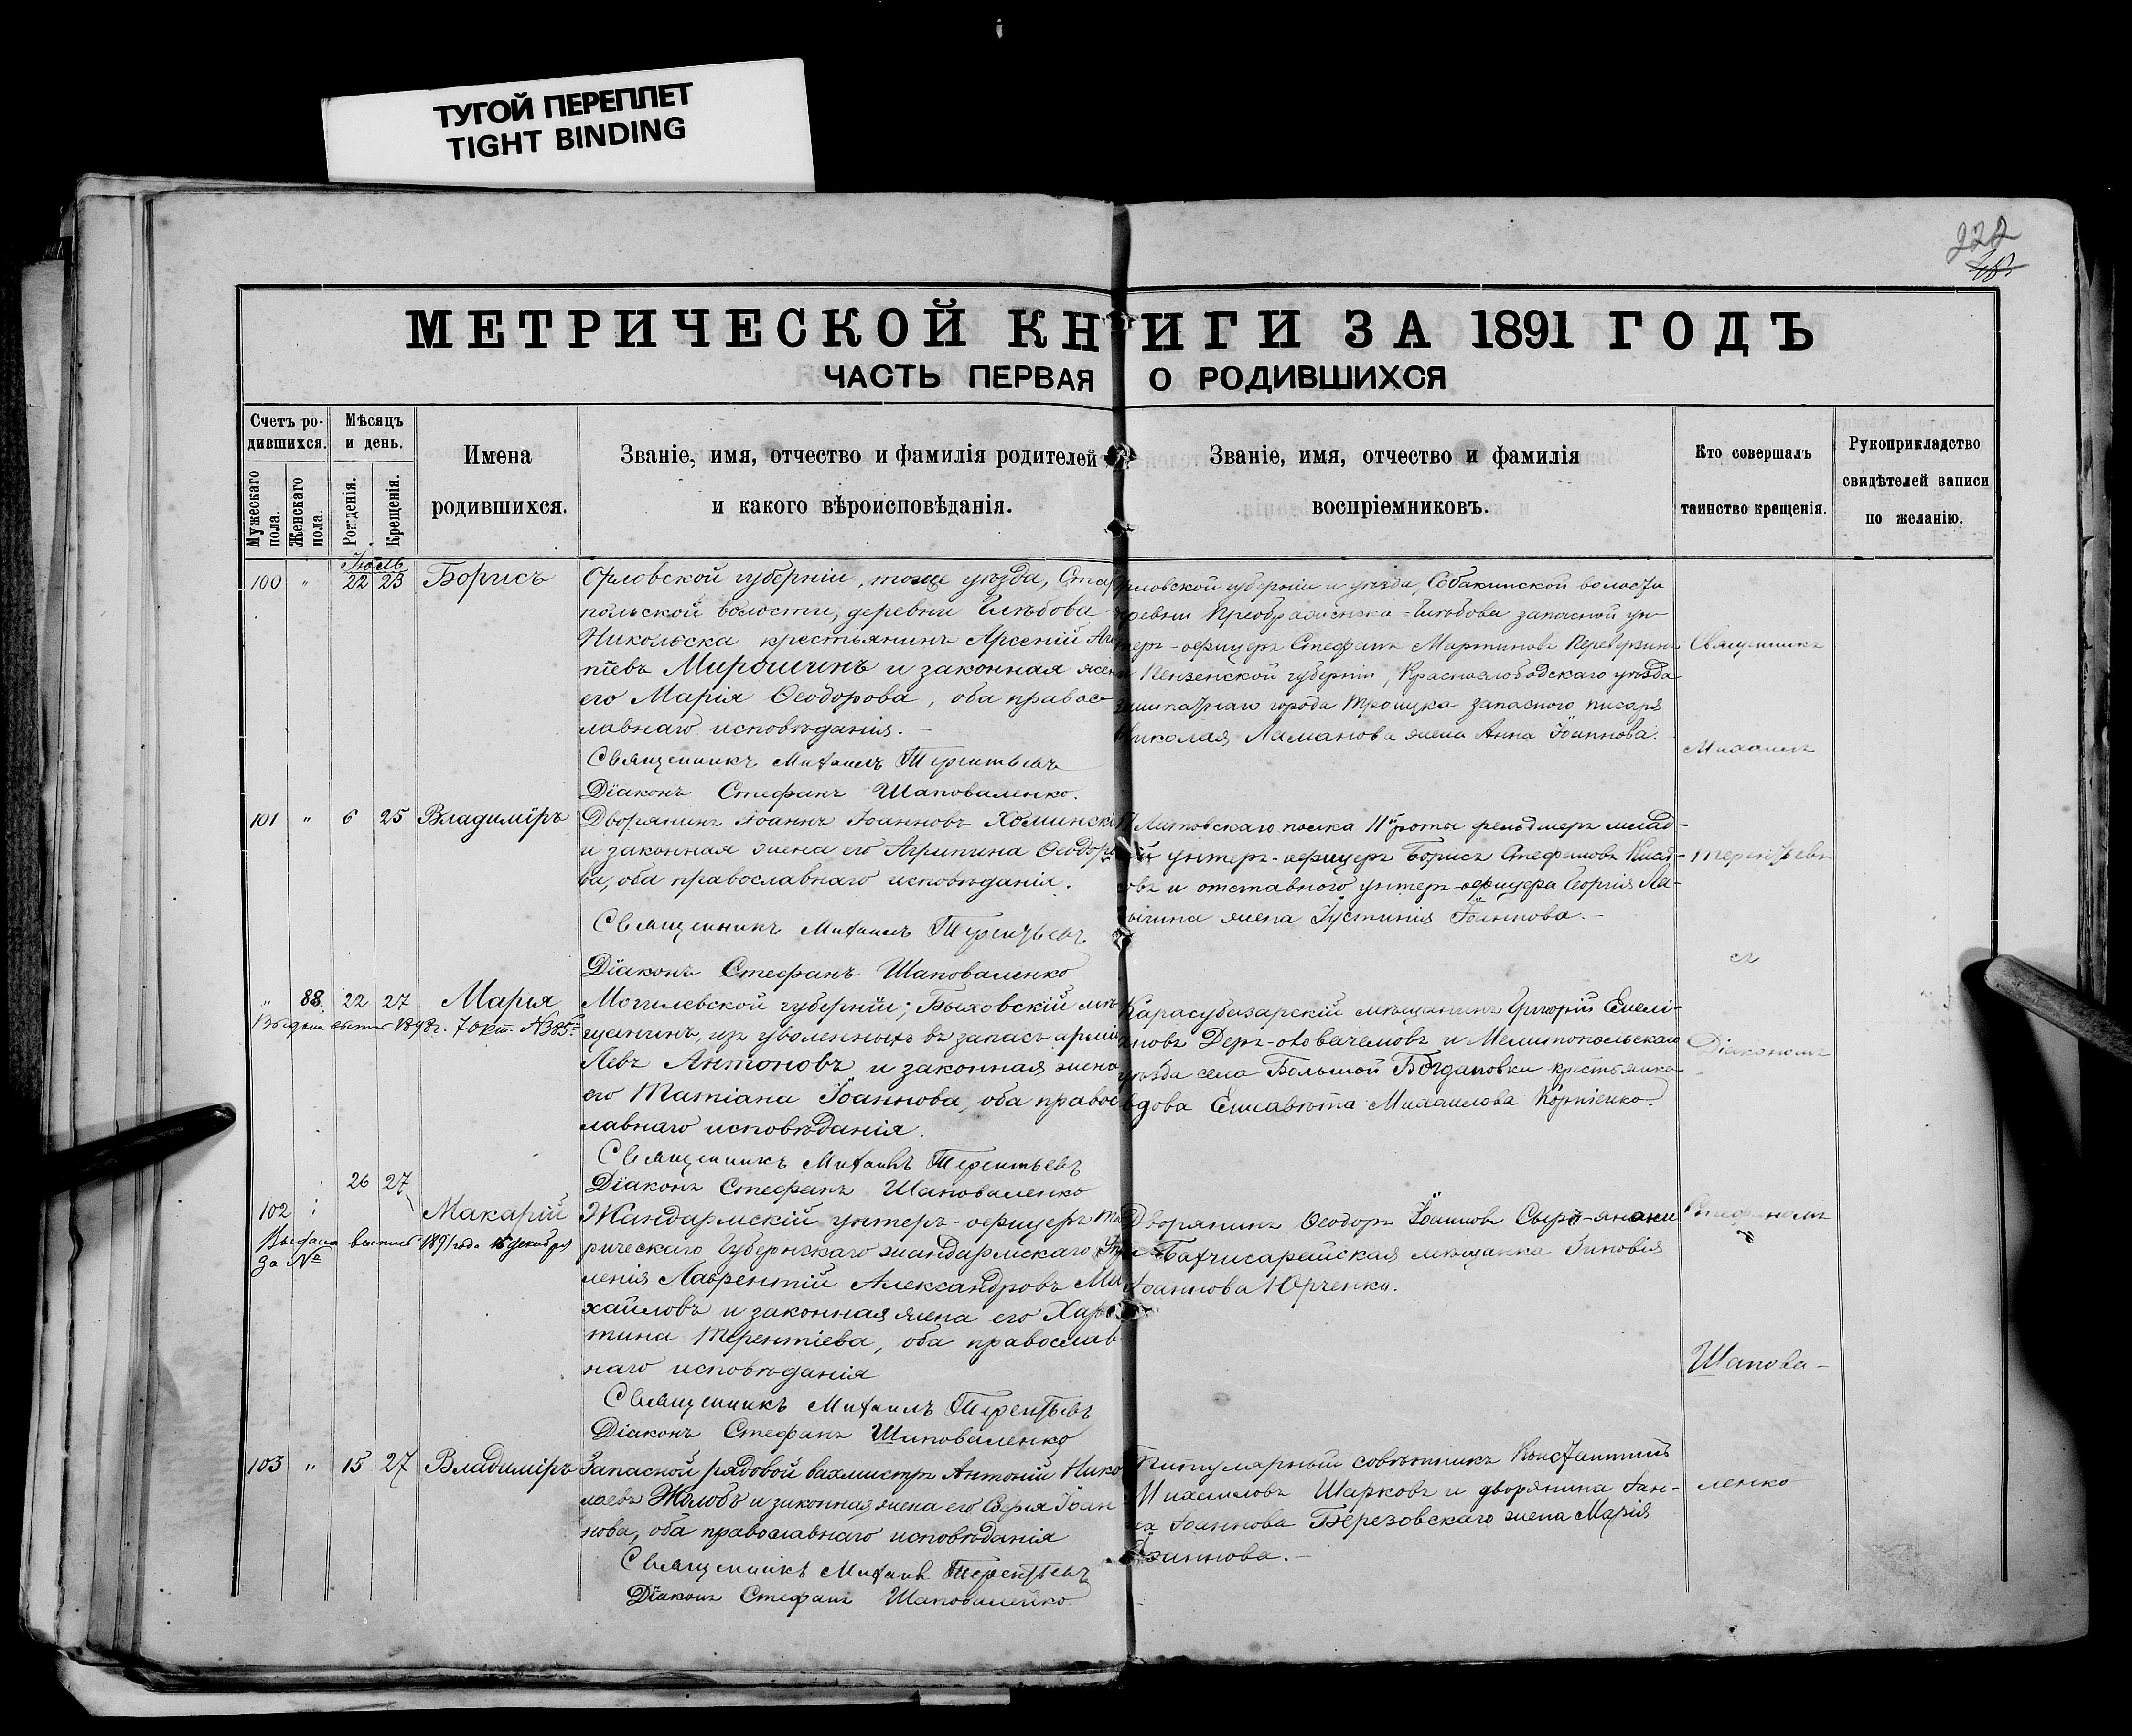 ТУГОЙ ПЕРЕПЛЕТ
TIGHT BINDING
222
МЕТРИЧЕСКОЙ КНИГИ ЗА 1891 ГОДЪ
ЧАСТЬ ПЕРВАЯ О РОДИВШИХСЯ
Счетъ ро-
дившихся.
Мужескаго пола.
Женскаго пола.
Мѣсяцъ
и день.
Рожденія.
Крещенія.
Имена
родившихся.
Званіе, имя, отчество и фамилія родителей
и какого вѣроисповѣданія.
Званіе, имя, отчество и фамилія
воспріемниковъ.
Кто совершалъ
таинство крещенія.
Рукоприкладство
свидѣтелей записи
по желанію.
Іюль
100 " 22 23 Борисъ
Орловской губерніи, тогоже уѣзда,
польской волости, деревни Глѣбова-
Никольска крестьянинъ Арсеній
піевъ Мирошинъ и законная жена
его Марія Ѳеодорова, оба правос
лавнаго исповѣданія. -
Священникъ Михаилъ Терентьевъ
Діаконъ Стефанъ Шаповаленко.
Орловской губерніи и уѣзда, Собакинской волости
деревни Преображенска-Глѣбова запасной ун-
теръ-офицеръ Стефанъ Мартиновъ Переверзинъ
и Пензенской губерніи, Краснослободскаго уѣзда
заштатнаго города Троицка запасного писаря
Николая Ламанова жена Анна Іоаннова.
101 " 6 25 Владиміръ
Дворянинъ Іоаннъ Іоанновъ Хоминскій
и законная жена его Агрипина Ѳеодоро
ва, оба православнаго исповѣданія.
Священникъ Михаилъ Терентьевъ
Діаконъ Стефанъ Шаповаленко
Литовскаго полка 11й роты фельдшеръ млад-
шій унтеръ-офицеръ Борисъ Стефановъ
овъ и отставного унтеръ-офицера Георгія Ла-
жена Іустинія Іоаннова. -
" 88 22 27 Марія
Выдана выпись 1898г. 7 окт. №385
Могилевской губерніи; Быховскій мѣ
щанинъ, изъ уволенныхъ въ запасъ арміи
Левъ Антоновъ и законная жена
его Татіана Іоаннова, оба правос
лавнаго исповѣданія.
Священникъ Михаилъ Терентьевъ
Діаконъ Стефанъ Шаповаленко
Карасубазарскій мѣщанинъ Григорій Емелі-
ановъ и Мелитопольскаго
уѣзда села Большой Богдановки крестьянка
вдова Елисавета Михаилова Корніенко.
102 26 27 Макарій
Выдана выпись 1891 года 15 декабря
за №
Жандармскій унтеръ-офицеръ Тав
рическаго Губернскаго жандармскаго Упр
ленія Лаврентій Александровъ Ми
хайловъ и законная жена его Хари
тина Терентіева, оба православ
наго исповѣданія
Священникъ Михаилъ Терентьевъ
Діаконъ Стефанъ Шаповаленко
Дворянинъ Ѳеодоръ Іоанновъ
и Бахчисарайская мѣщанка Зиновія
Іоаннова Юрченко.
103 " 15 27 Владиміръ
Запасной рядовой вахмистръ Антоній Нико
лаевъ Жолобъ и законная жена его Іоан
нова, оба православнаго исповѣданія
Священникъ Михаилъ Терентьевъ
Діаконъ Стефанъ Шаповаленко
Титулярный совѣтникъ Константинъ
Михаиловъ Шарковъ и дворянина
Іоаннова Березовскаго жена Марія
Іоаннова. -
Священникъ
Михаилъ
Терентьевъ
съ
Діакономъ
Стефаномъ
Шапова-
ленко